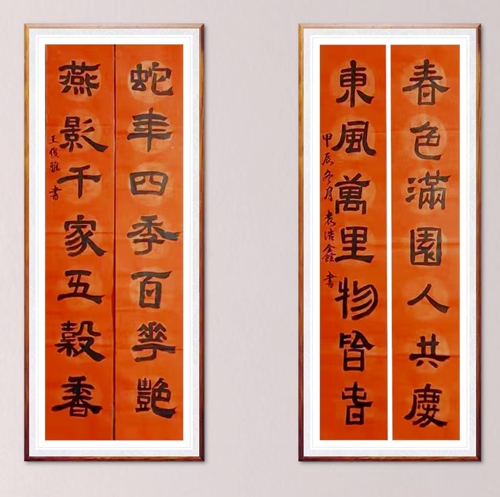 春色滿園人共慶
東風萬里物皆旾
甲辰冬月 袁浩 書
蛇年四季百華艷
燕影千家五穀香
王俊 書